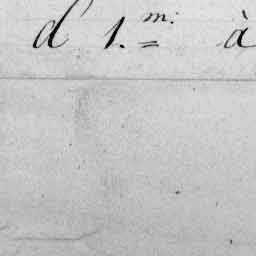 d 1.m. à